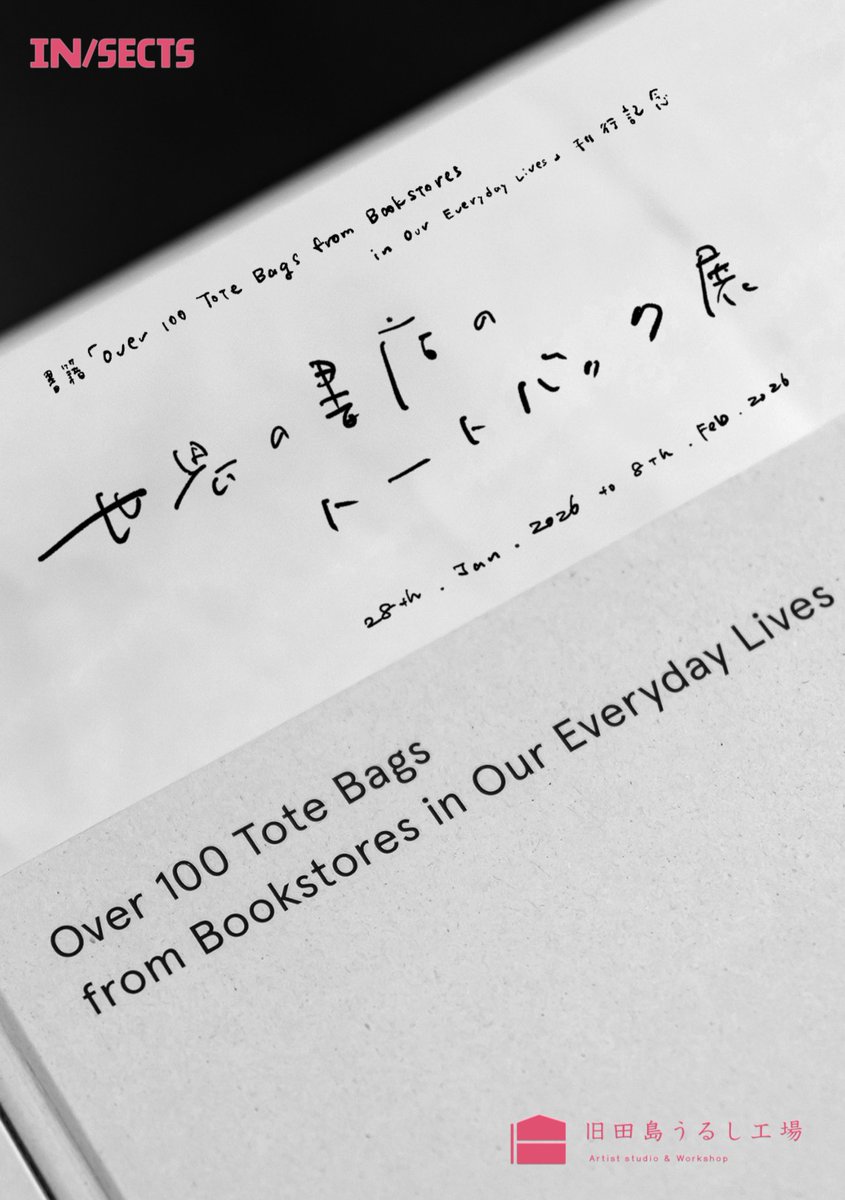 IN/SECTS
書籍「Over 100 Tote Bags from Bookstores
in Our Everyday Lives」刊行記念
世界の書店の
トートバック展
28th. Jan. 2026 to 8th. Feb. 2026
Over 100 Tote Bags
from Bookstores in Our Everyday Lives
旧田島うるし工場
Artist studio & Workshop